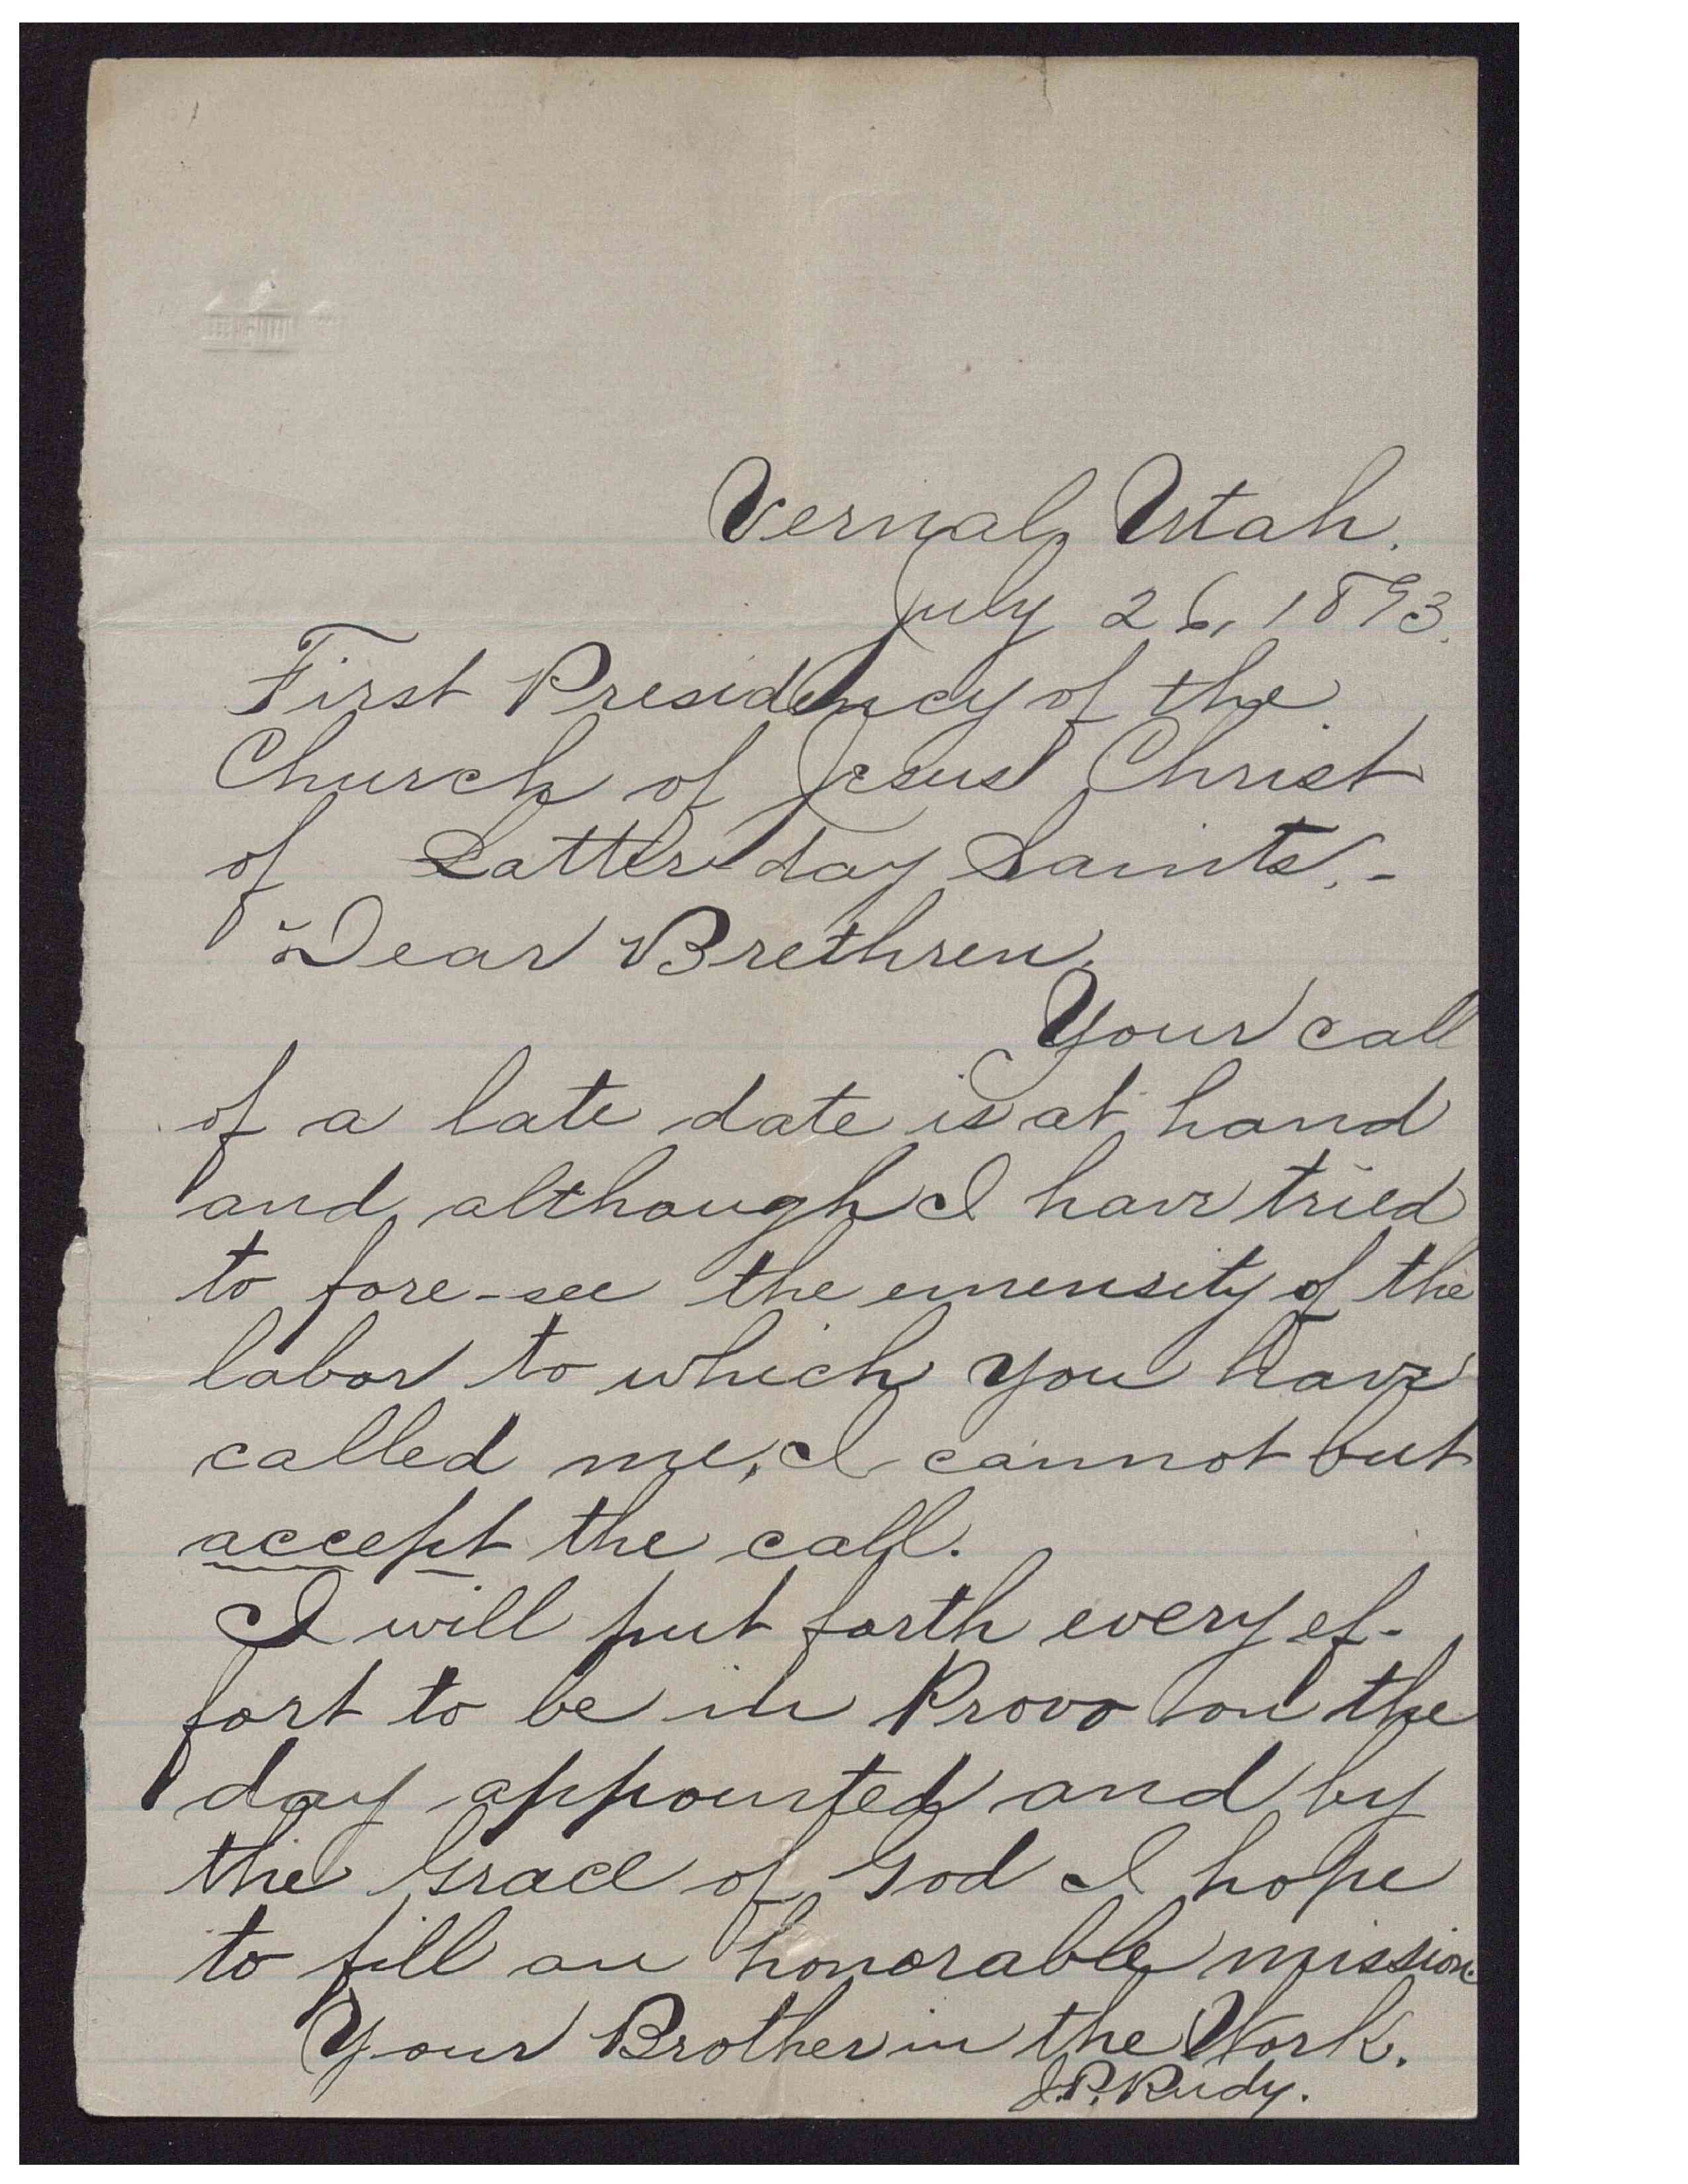 Vernal, Utah.
July 26, 1893.
First Presidency of the
Church of Jesus Christ
of Latter-day Saints.-
Dear Brethren,
Your call
of a late date is at hand
and although I have tried
to fore-see the emensity of the
labor to which you have
called me, I cannot but
accept the call.
I will put forth every ef-
fort to be in Provo on the
day appointed and by
the Grace of God I hope
to fill an honorable mission.
Your Brother in the Work.
J.P. Rudy.